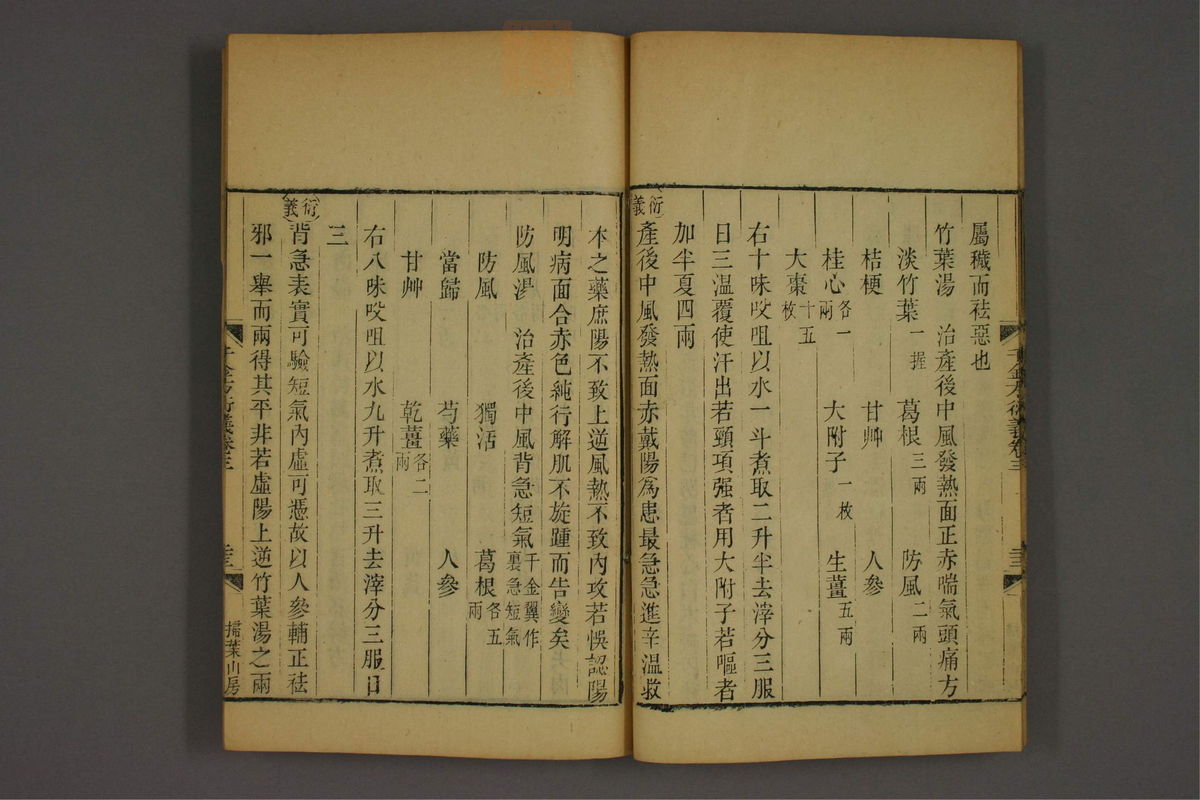 屬穢而祛惡也
竹葉湯　治產後中風發熱面正赤喘氣頭痛方
淡竹葉一握　葛根三兩　防風二兩
桔梗　甘艸　人參
桂心各一兩　大附子一枚　生薑五兩
大棗十五枚
右十味㕮咀以水一斗煮取二升半去滓分三服
日三溫覆使汗出若頸項强者用大附子若嘔者
加半夏四兩
衍義
產後中風發熱面赤戴陽為患最急急進辛溫救
本之藥庶陽不致上逆風熱不致內攻若悞認陽
明病面合赤色純行解肌不旋踵而告變矣
防風湯　治產後中風背急短氣千金翼作裏急短氣
防風　獨活　葛根各五兩
當歸　芍藥　人參
甘艸　乾薑各二兩
右八味㕮咀以水九升煮取三升去滓分三服日
三
衍義
背急表實可驗短氣內虛可憑故以人參輔正祛
邪一舉而兩得其平非若虛陽上逆竹葉湯之兩
千金方衍義卷三
掃葉山房